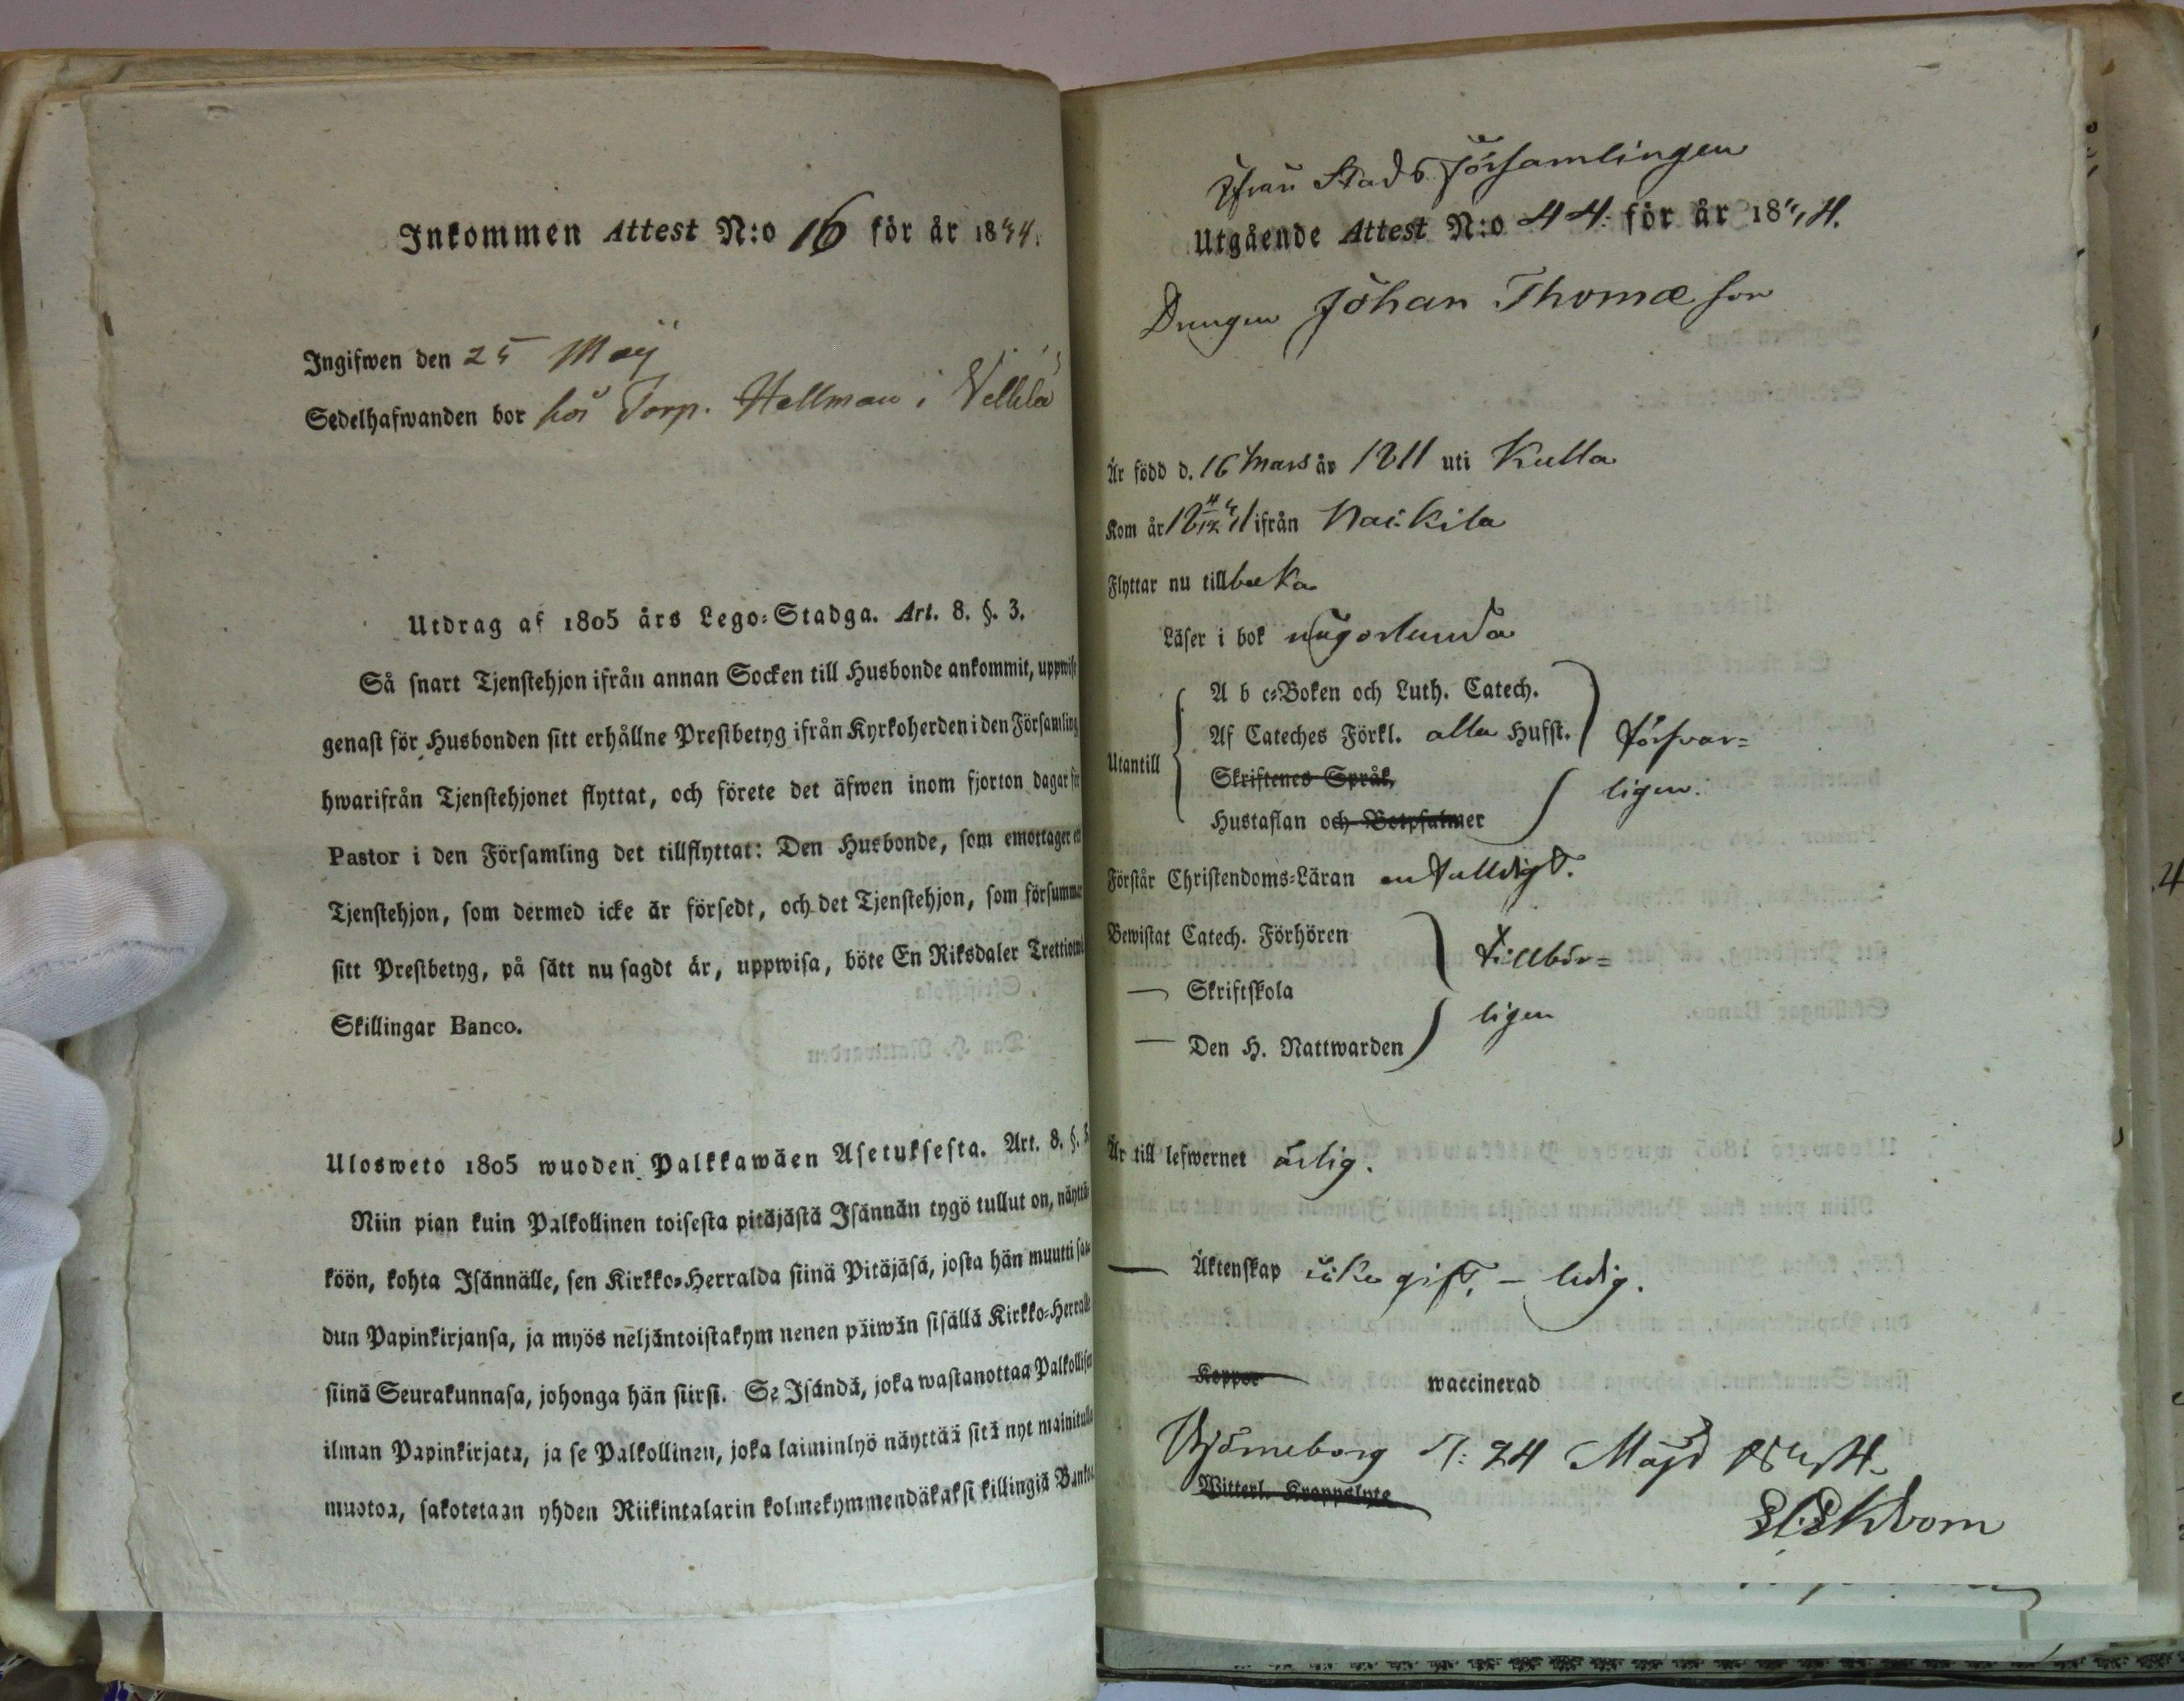 Inkommen Attest N:o 16 för år 1844.
Ingifwen den 25 Maij
Sedelhafwanden bor hos Torp. Hellman i
Utdrag af 1805 års Lego-Stadga. Art. 8. §. 3.
Så snart Tjenstehjon ifrån annan Socken till Husbonde ankommit, uppwise
genast för Husbonden sitt erhållne Prestbetyg ifrån Kyrkoherden i den Församling
hwarifrån Tjenstehjonet flyttat, och förete det äfwen inom fjorton dagar för
Pastor i den Församling det tillflyttat: Den Husbonde, som emottager ett
Tjenstehjon, som dermed icke är försedt, och det Tjenstehjon, som försummar
sitt Prestbetyg, på sätt nu sagdt är, uppwisa, böte En Riksdaler Trettiotwå
Skillingar Banco.
Ulosweto 1805 wuoden Palkkawäen Asetuksesta. Art. 8. §. 3
Niin pian kuin Palkollinen toisesta pitäjästä Isännän tygö tullut on, näyttä-
köön, kohta Isännälle, sen Kirkko-Herralda siinä Pitäjäsä, josta hän muutti saa-
dun Papinkirjansa, ja myös neljäntoistakym nenen päiwän sisällä Kirkko-Herralle
siinä Seurakunnasa, johonga hän siirsi. Se Isändä, joka wastanottaa Palkollisen
ilman Papinkirjata, ja se Palkollinen, joka laiminlyö näyttää sitä nyt mainitulla
muotoa, sakotetaan yhden Riikintalarin kolmekymmendäkaksi killingiä Bankos
Ifrån Stads församlingen
Utgående Attest N:o 44. för år 1844.
Drängen Johan Thomæ son
Är född d. 16 Mars år 1811 uti Kulla
Kom år ifrån Nakkila
Flyttar nu tillbaka
Läser i bok någorlunda
A b c-Boken och Luth. Catech.
Af Cateches Förkl. alla Hufst. försvar=
Utantill
Skriftenes Språk,
ligen.
Hustaflan och Botpsalmer
Förstår Christendoms-Läran enfalldigt.
Bewistat Catech. Förhören
tillbör=
— Skriftskola
ligen
— Den H. Nattwarden
Är till lefwernet ärlig.
— Äktenskap icke gift, – ledig.
Koppor waccinerad
Björneborg d: 24 Maji 1844.
Witterl. Kroppslyte